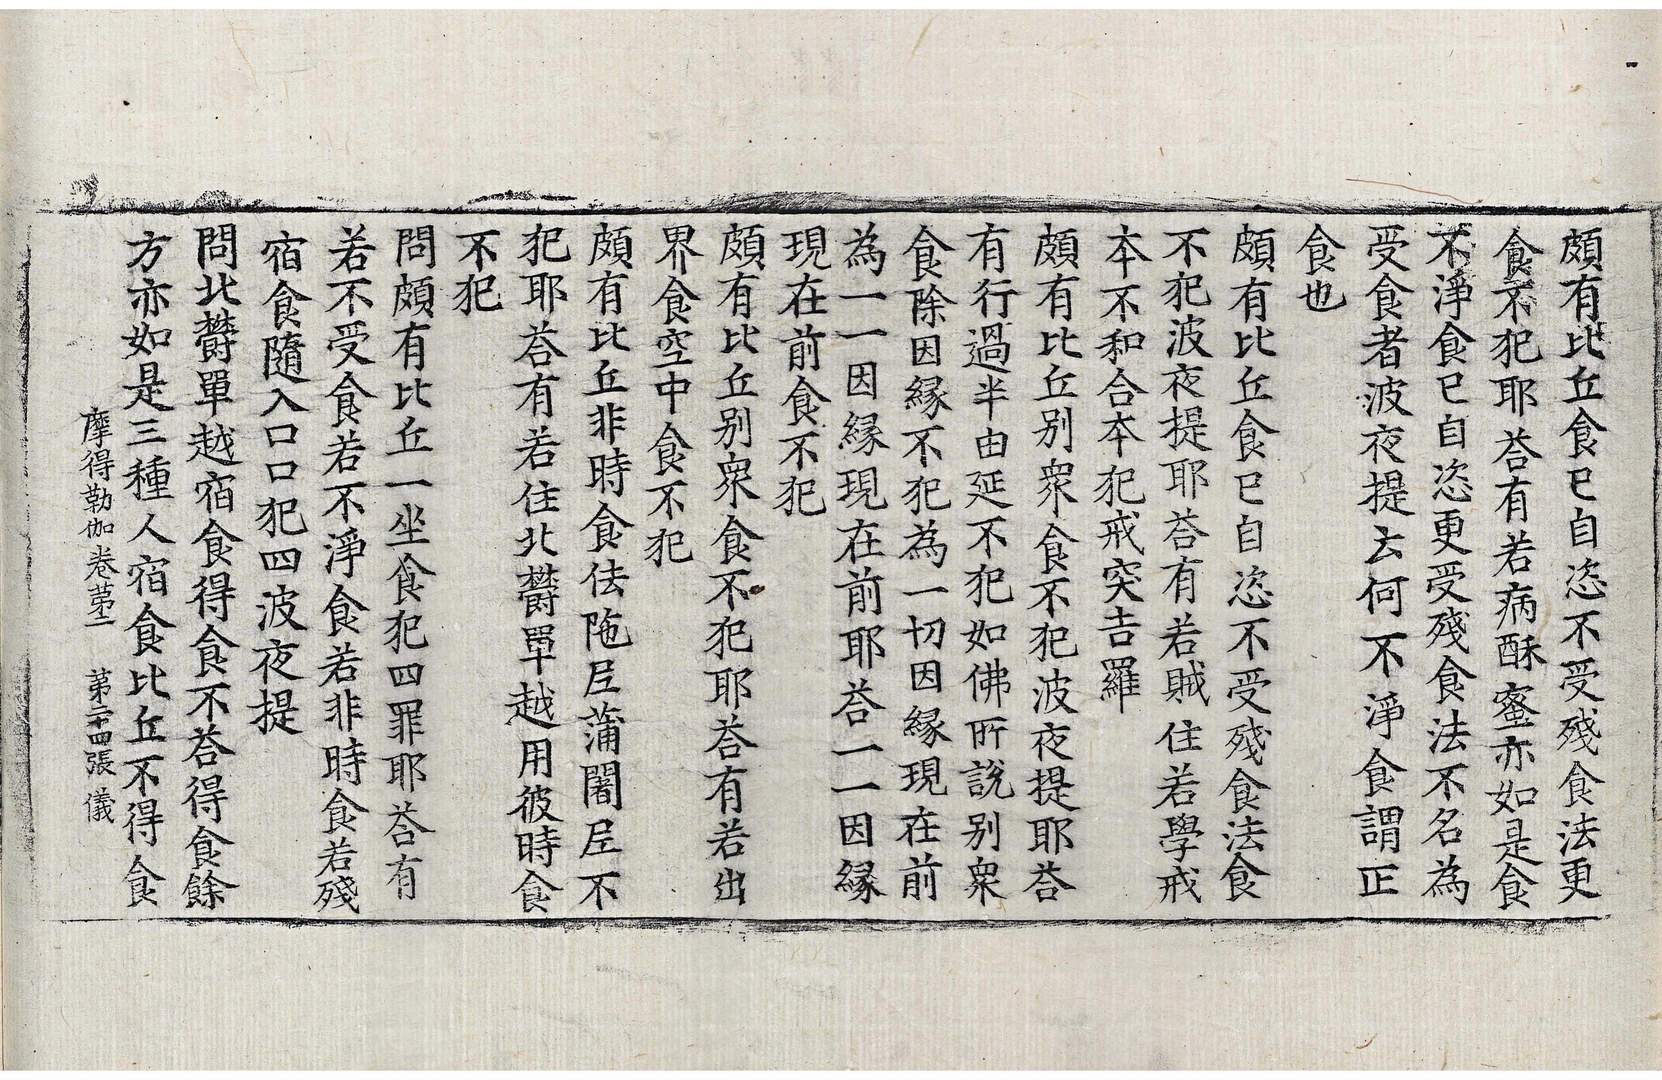 頗有比丘食已自恣不受殘食法更
食不犯耶荅有若病酥蜜亦如是食
不淨食已自恣更受殘食法不名為
受食者波夜提云何不淨食謂正
食也
頗有比丘食已自恣不受殘食法食
不犯波夜提耶荅有若賊住若學戒
本不和合本犯戒突吉羅
頗有比丘別衆食不犯波夜提耶荅
有行過半由延不犯如佛所說別衆
食除因縁不犯為一切因縁現在前
為一一因縁現在前耶荅一一因縁
現在前食不犯
頗有比丘別衆食不犯耶荅有若出
界食空中食不犯
頗有比丘非時食佉陁尼蒲闍尼不
犯耶荅有若住北欝單越用彼時食
不犯
問頗有比丘一坐食犯四罪耶荅有
若不受食若不淨食若非時食若殘
宿食隨入口口犯四波夜提
問北欝單越宿食得食不荅得食餘
方亦如是三種人宿食比丘不得食
摩得勒伽卷第二 第二十四張 儀